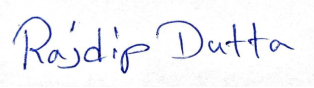 Rajdip Dutta